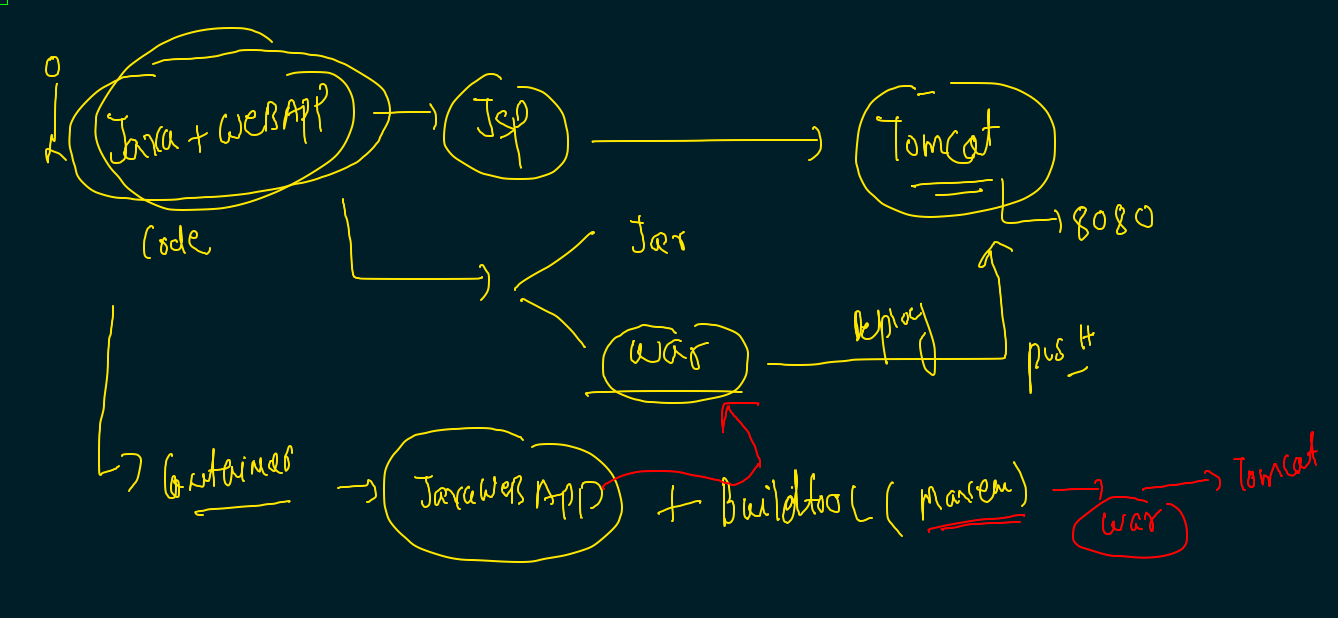 Java + WEBAPP
JSP
Tomcat
8080
Code
Jar
war
Deploy
pusH
Container
JavaWEB APP + Buildtool (Maven)
war
Tomcat